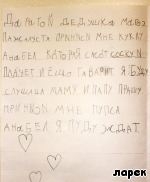 ДАРАГОЙ ДЕДУШКА МАРОЗ
ПАЖАЛУСТА ПРИНИСИ МНЕ КУКЛУ
АНАБЕЛ КАТОРАЯ САСЁТ СОСКУ И
ПЛАЧЕТ И ЕЩО ГАВАРИТ Я БУДУ
СЛУШАЦА МАМУ И ПАПУ ПРАШУ
ПРИНИСИ МНЕ ПУПСА
АНАБЕЛ Я ПУДУ ЖДАТ
ларек